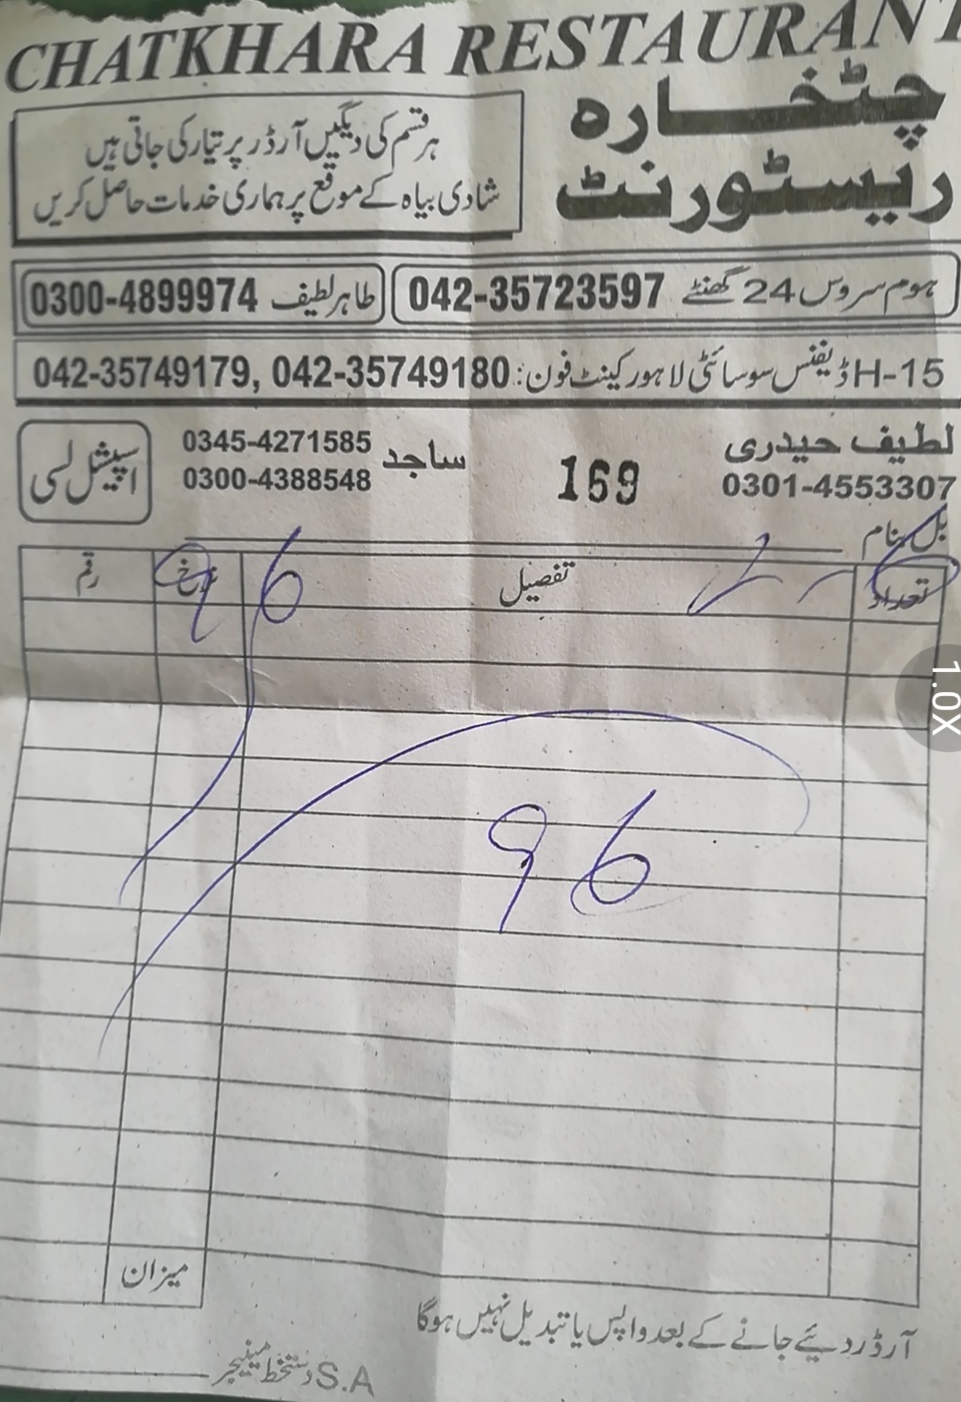 CHATKHARA RESTAURANT
چٹخارہ
ریسٹورنٹ
ہر قسم کی دیگیں آرڈر پر تیار کی جاتی ہیں
شادی بیاہ کے موقع پر ہماری خدمات حاصل کریں
ہوم سروس 24 گھنٹے 042-35723597
طاہر لطیف 0300-4899974
H-15 ڈیفنس سوسائٹی لاہور کینٹ فون: 042-35749179, 042-35749180
لطیف حیدری
0301-4553307
169
ساجد 0345-4271585
0300-4388548
اسپیشل لسی
بل بنام
تعداد تفصیل نرخ رقم
96
96
میزان
آرڈر دئیے جانے کے بعد واپس یا تبدیل نہیں ہوگا
دستخط مینیجر
S.A
1.0X